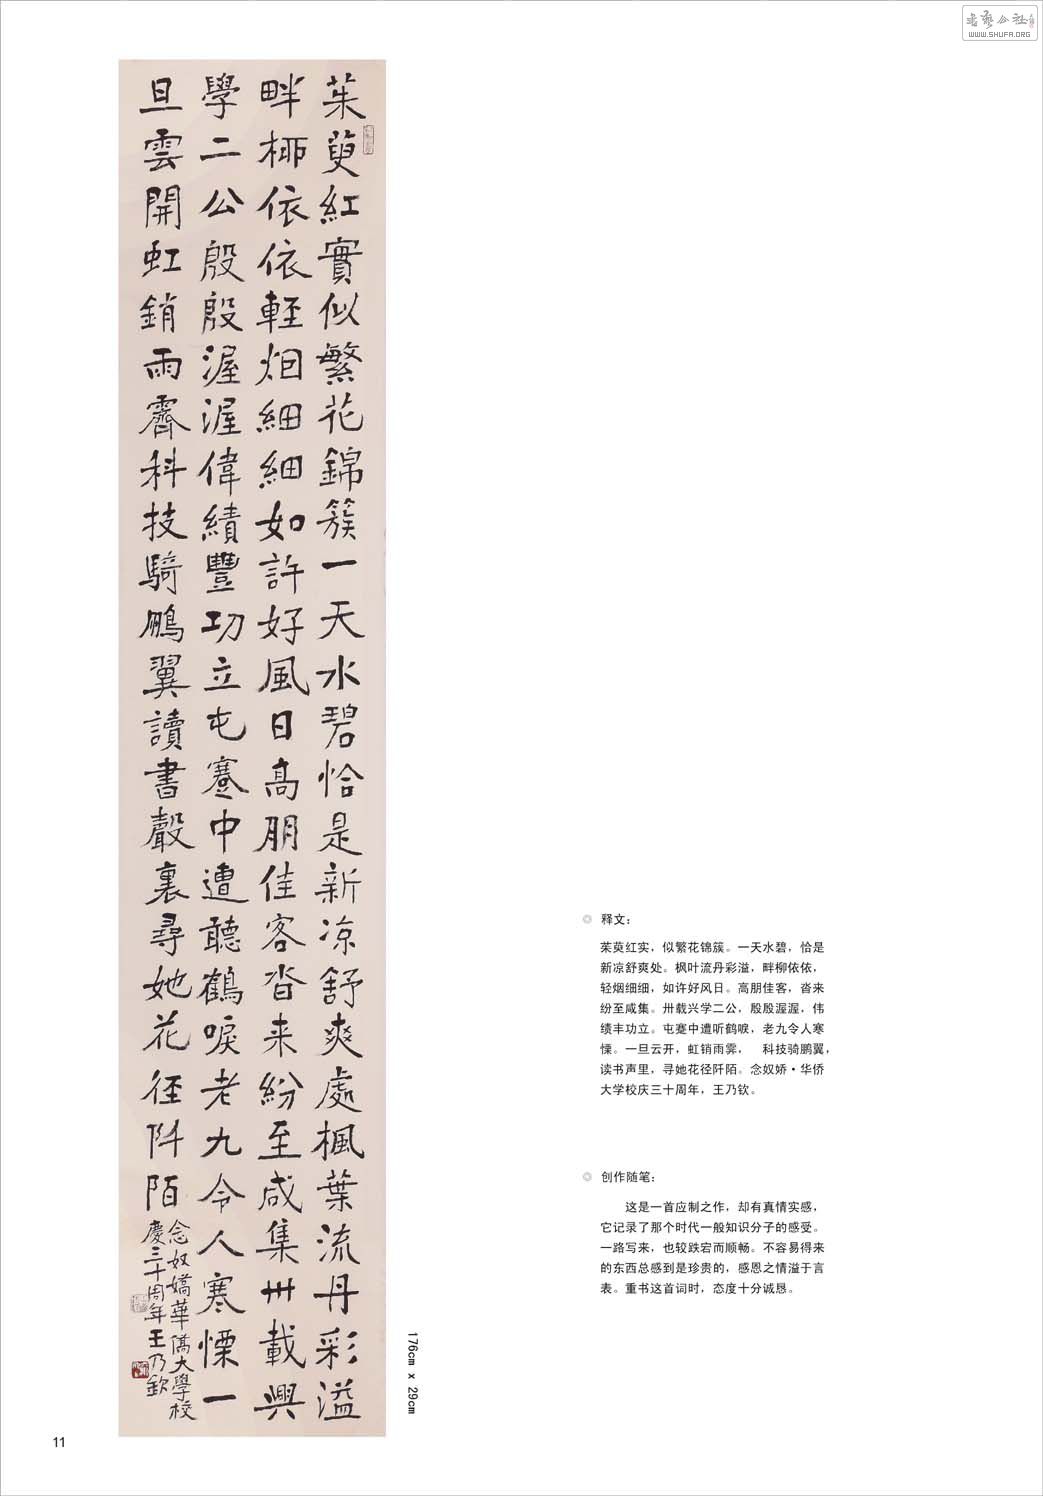 书艺公社
WWW.SHUFA.ORG
茱萸紅實似繁花錦簇一天水碧恰是新凉舒爽處楓葉流丹彩溢
畔栁依依輕烟細細如許好風日高朋佳客沓来紛至咸集卅載興
學二公殷殷渥渥偉績豐功立屯蹇中遭聽鶴唳老九令人寒慄一
旦雲開虹銷雨霽科技騎鵬翼讀書聲裏尋她花径阡陌
念奴嬌華僑大學校
慶三十周年王乃欽
176cm x 29cm
释文：
茱萸红实，似繁花锦簇。一天水碧，恰是
新凉舒爽处。枫叶流丹彩溢，畔柳依依，
轻烟细细，如许好风日。高朋佳客，沓来
纷至咸集。卅载兴学二公，殷殷渥渥，伟
绩丰功立。屯蹇中遭听鹤唳，老九令人寒
慄。一旦云开，虹销雨霁， 科技骑鹏翼，
读书声里，寻她花径阡陌。念奴娇·华侨
大学校庆三十周年，王乃钦。
创作随笔：
这是一首应制之作，却有真情实感，
它记录了那个时代一般知识分子的感受。
一路写来，也较跌宕而顺畅。不容易得来
的东西总感到是珍贵的，感恩之情溢于言
表。重书这首词时，态度十分诚恳。
11